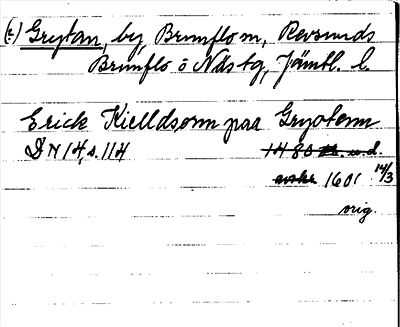 (2) Grytan, by, Brunflo sn, Revsunds
Brunflo o Näs tg, Jämtl. l.
Erick Kielldsonn paa Gryotenn
DN 14, s. 114
1601 14/3
orig.